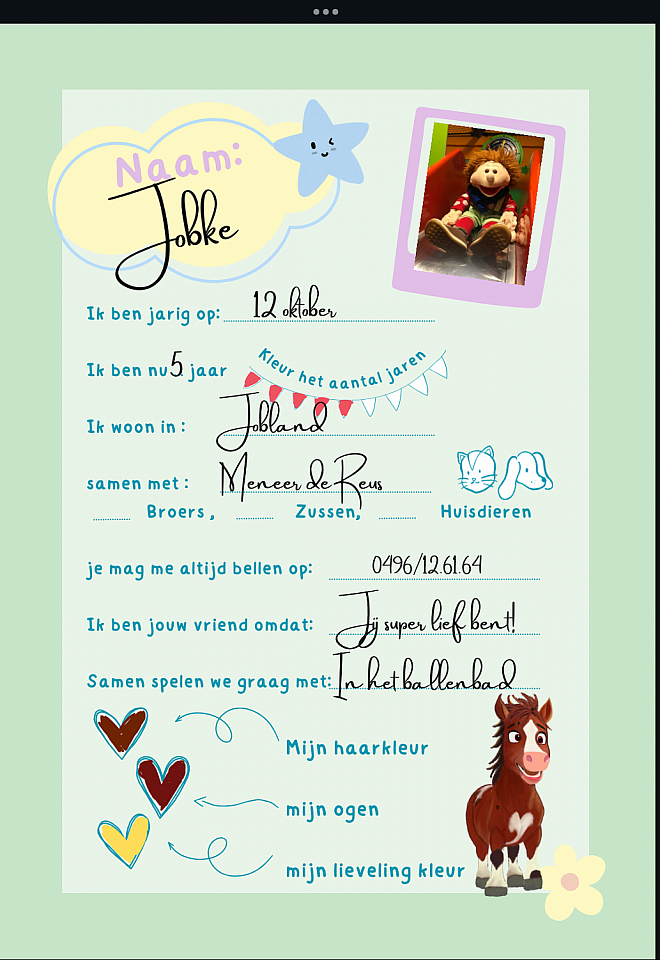 Naam:
Jobke
Ik ben jarig op: 12 oktober
Ik ben nu 5 jaar
Kleur het aantal jaren
Ik woon in : Jobland
samen met : Meneer de Reus
Broers, Zussen, Huisdieren
je mag me altijd bellen op: 0496/12.61.64
Ik ben jouw vriend omdat: Jij super lief bent!
Samen spelen we graag met: In het ballenbad
Mijn haarkleur
mijn ogen
mijn lieveling kleur